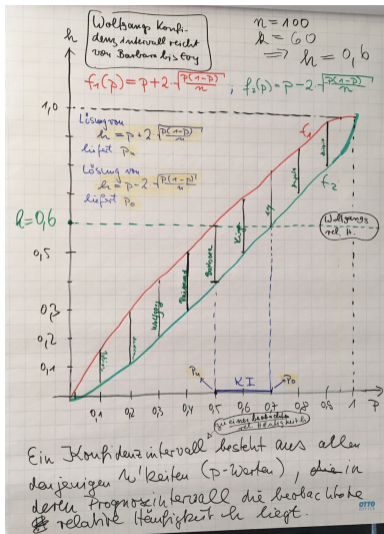 Wolfgangs Konfi-
denzintervall reicht
von Barbara bis Evy
h
n = 100
k = 60
⇒ h = 0,6
f₁(p) = p + 2·√(p(1-p)/n) , f₂(p) = p - 2·√(p(1-p)/n)
1,0
Lösung von
h = p + 2√(p(1-p)/n)
liefert pᵤ
Lösung von
h = p - 2√(p(1-p)/n)
liefert p₀
f₁
f₂
h = 0,6
Wolfgangs
rel. H.
0,5
0,3
0,2
0,1
Wolfgang
Barbara
Evy
pᵤ
KI
p₀
0,1 0,2 0,3 0,4 0,5 0,6 0,7 0,8 0,9 1 p
zu einer beobachteten
rel. Häufigkeit h
Ein Konfidenzintervall besteht aus allen
denjenigen W'keiten (p-Werten), in
deren Prognoseintervall die beobachtete
relative Häufigkeit h liegt.
OTTO